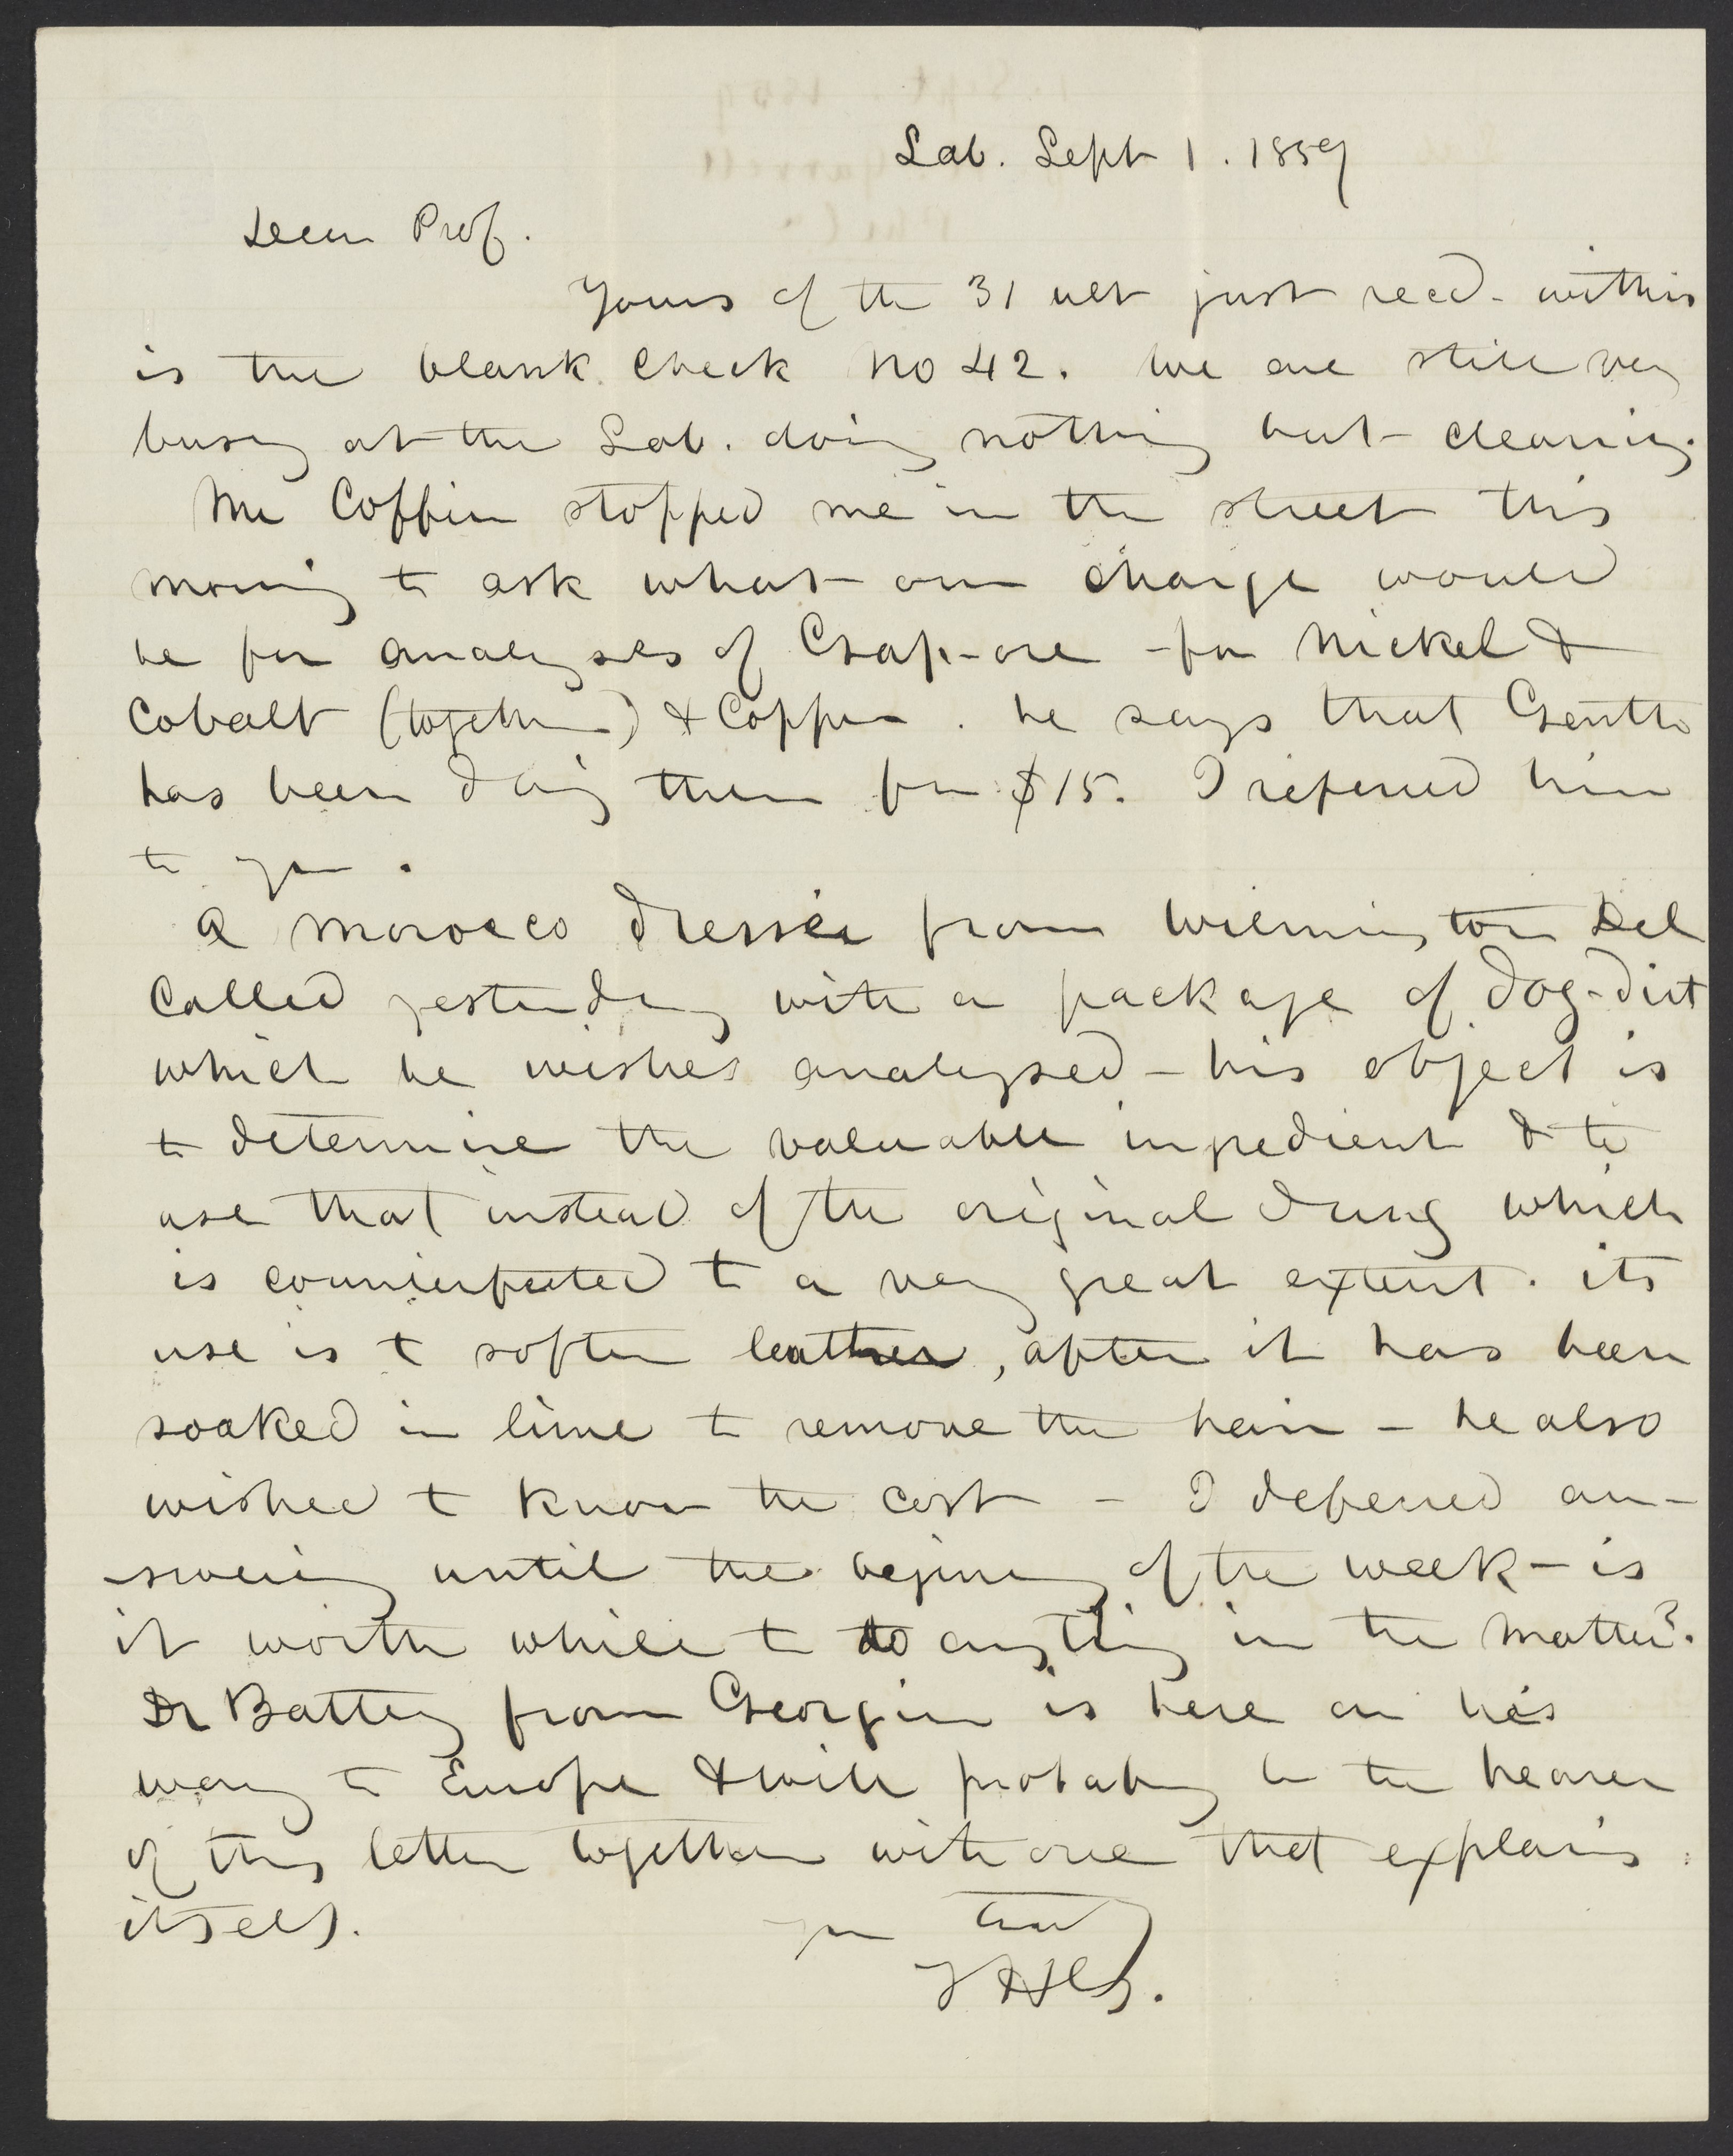 Lab. Sept 1. 1859
Dear Prof.
Yours of the 31 ult just recd. within
is the blank check no 42. We are still very
busy at the Lab. doing nothing but cleaning.
Mr Coffin stopped me in the street this
morning to ask what our charge would
be for analyses of Gap-ore - for Nickel &
Cobalt (together) & Copper. he says that Genth
has been doing them for $15. I referred him
to you.
A morocco dresser from Wilmington Del
Called yesterday with a package of dog-dirt
which he wishes analyzed - his object is
to determine the valuable ingredient & to
use that instead of the original dung which
is counterfeited to a very great extent. its
use is to soften leather, after it has been
soaked in lime to remove the hair - he also
wished to know the cost - I deferred an-
-swering until the begining of the week - is
it worth while to do anything in the matter?
Dr Battey from Georgia is here on his
way to Europe & will probably be the bearer
of this letter together with one that explains
itself.